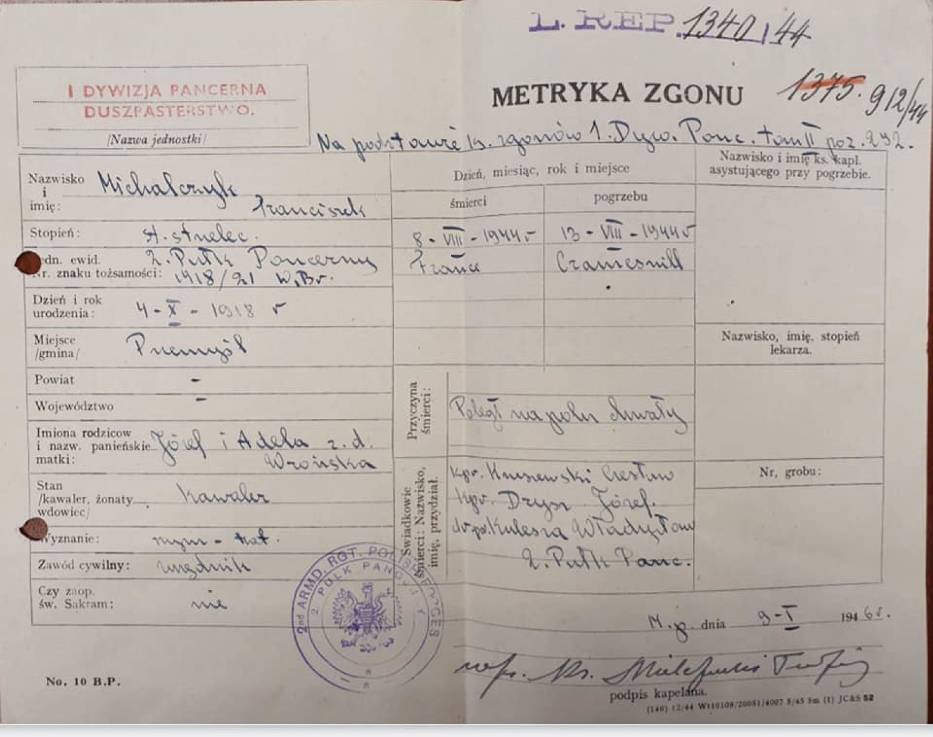 L. REP. 1340/44
I DYWIZJA PANCERNA
DUSZPASTERSTWO.
/Nazwa jednostki/
METRYKA ZGONU
1375. 912/44
Na podstawie ks. zgonów 1. Dyw. Panc. tom II poz. 232.
Nazwisko i imię: Michalczyk Franciszek
Stopień: st. strzelec.
Jedn. ewid. 2. Pułk Pancerny
Nr. znaku tożsamości: 1918/21 W.Br.
Dzień i rok urodzenia: 4-X-1918 r
Miejsce /gmina/ Przemyśl
Powiat -
Województwo -
Imiona rodziców i nazw. panieńskie matki: Józef i Adela z. d. Wrońska
Stan /kawaler, żonaty wdowiec/ kawaler
Wyznanie: rzym-kat.
Zawód cywilny: urzędnik
Czy zaop. św. Sakram: nie
No. 10 B.P.
Dzień, miesiąc, rok i miejsce
śmierci
pogrzebu
8-VIII-1944r
13-VIII-1944r
France
Cramesnill
Przyczyna śmierci:
Poległ na polu chwały
Świadkowie śmierci: Nazwisko, imię, przydział.
kpr. Czesław
kpr. Józef.
Kulesza Władysław
2. Pułk Panc.
Nazwisko i imię ks. kapl. asystującego przy pogrzebie.
Nazwisko, imię, stopień lekarza.
Nr. grobu:
2nd ARMD. RGT. POLISH FORCES
2. PUŁK PANC.
M.p. dnia 9-I 1946r.
podpis kapelana.
(140) 12/44 Wt10109/20051/4007 5/45 5m (1) JC&S 52